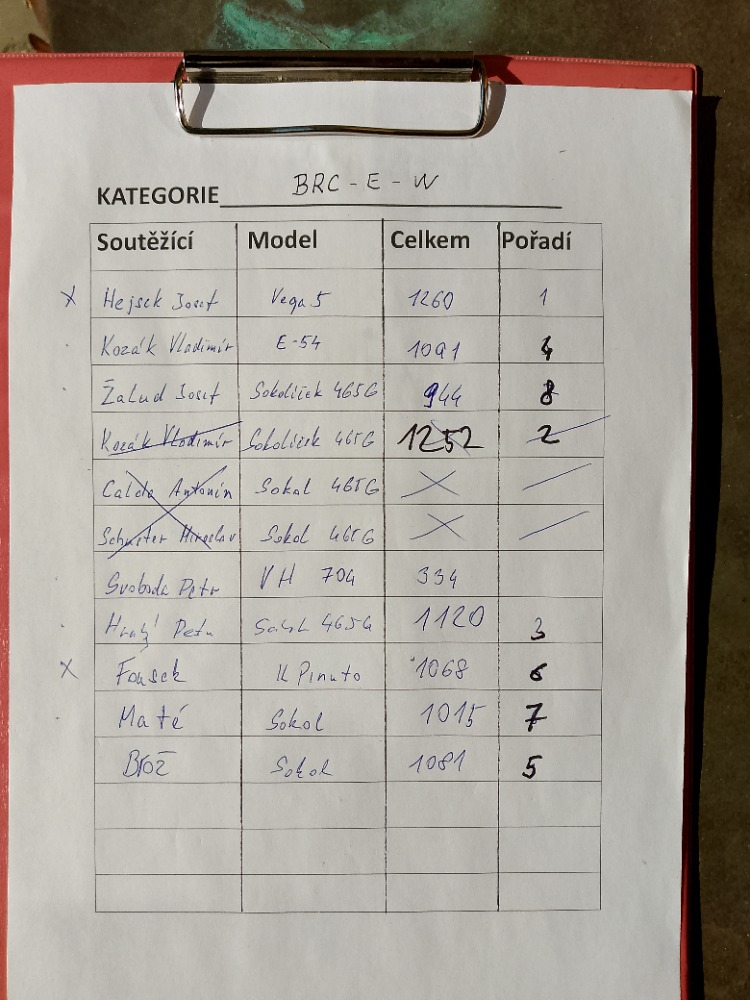 KATEGORIE BRC - E - W
Soutěžící Model Celkem Pořadí
X Hejsek Josef Vega 5 1260 1
Kozák Vladimír E-54 1091 4
Žalud Josef Sokolíček 465G 944 8
Kozák Vladimír Sokolíček 465G 1252 2
Calda Antonín Sokol 465G X /
Schuster Miroslav Sokol 465G X /
Svoboda Petr VH 704 334
Petr 465G 1120 3
X Fousek Il Pinuto 1068 6
Maté Sokol 1015 7
Brož Sokol 1081 5